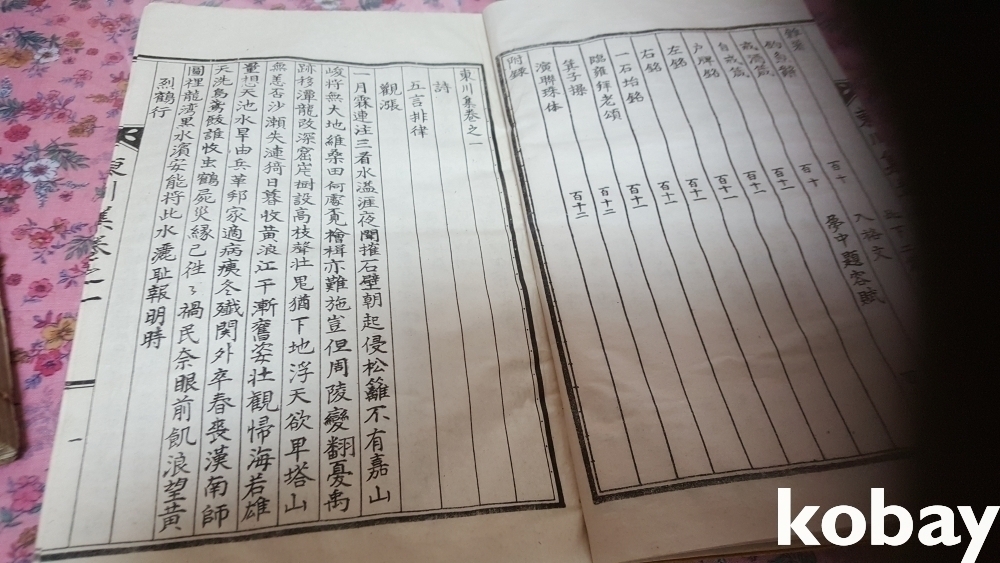 雜著
釣魚辭
戒酒箴
自戒箴
戶牌銘
左銘
右銘
一石枱銘
臨雍拜老頌
箕子操
演聯珠体
附錄
百十
百十
百十一
百十一
百十一
百十一
百十一
百十二
百十二
入格文
夢中題客賦
東川集卷之一
詩
五言排律
觀漲
一月霖連注三看水溢涯夜聞摧石壁朝起侵松籬不有嘉山
峻將無大地維桑田何處覓檜楫亦難施豈但周陵變翻憂禹
跡移潭龍改深窟岸樹設高枝聲壯兕猶下地浮天欲卑塔山
無恙否沙瀨失漣猗日暮收黃浪江干漸奮姿壯觀帰海若雄
量想天池水旱由兵革邦家適病痍冬殲関外卒春喪漢南師
天洗烏鳶骸誰收虫鶴屍災緣已徃々禍民奈眼前飢浪望黃
圖裡龍湾黑水濱安能将此水灑耻報明時
烈鶴行
東川集卷之一
一
kobay